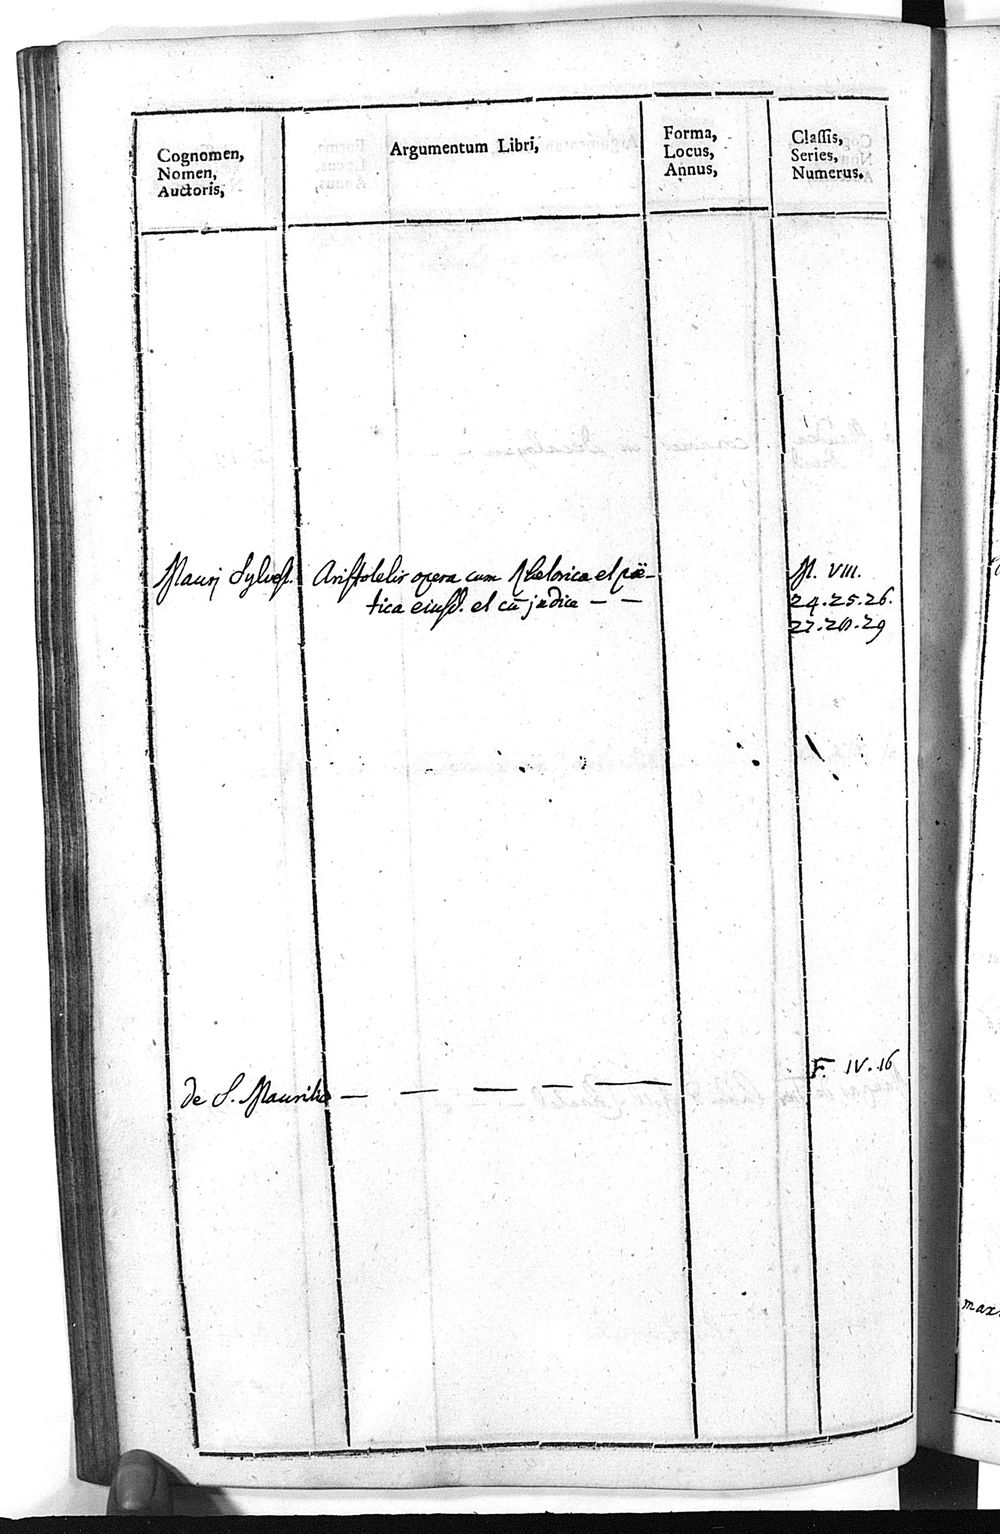 Cognomen,
Nomen,
Auctoris,
Argumentum Libri,
Forma,
Locus,
Annus,
Classis,
Series,
Numerus.
Maurj Sylvest.
Aristotelis opera cum Rhetorica et poë-
tica eiusd. et cū jndice — —
N. VIII.
24.25.26.
27.28.29
de S. Maurilio — — — — —
F. IV. 16
max.